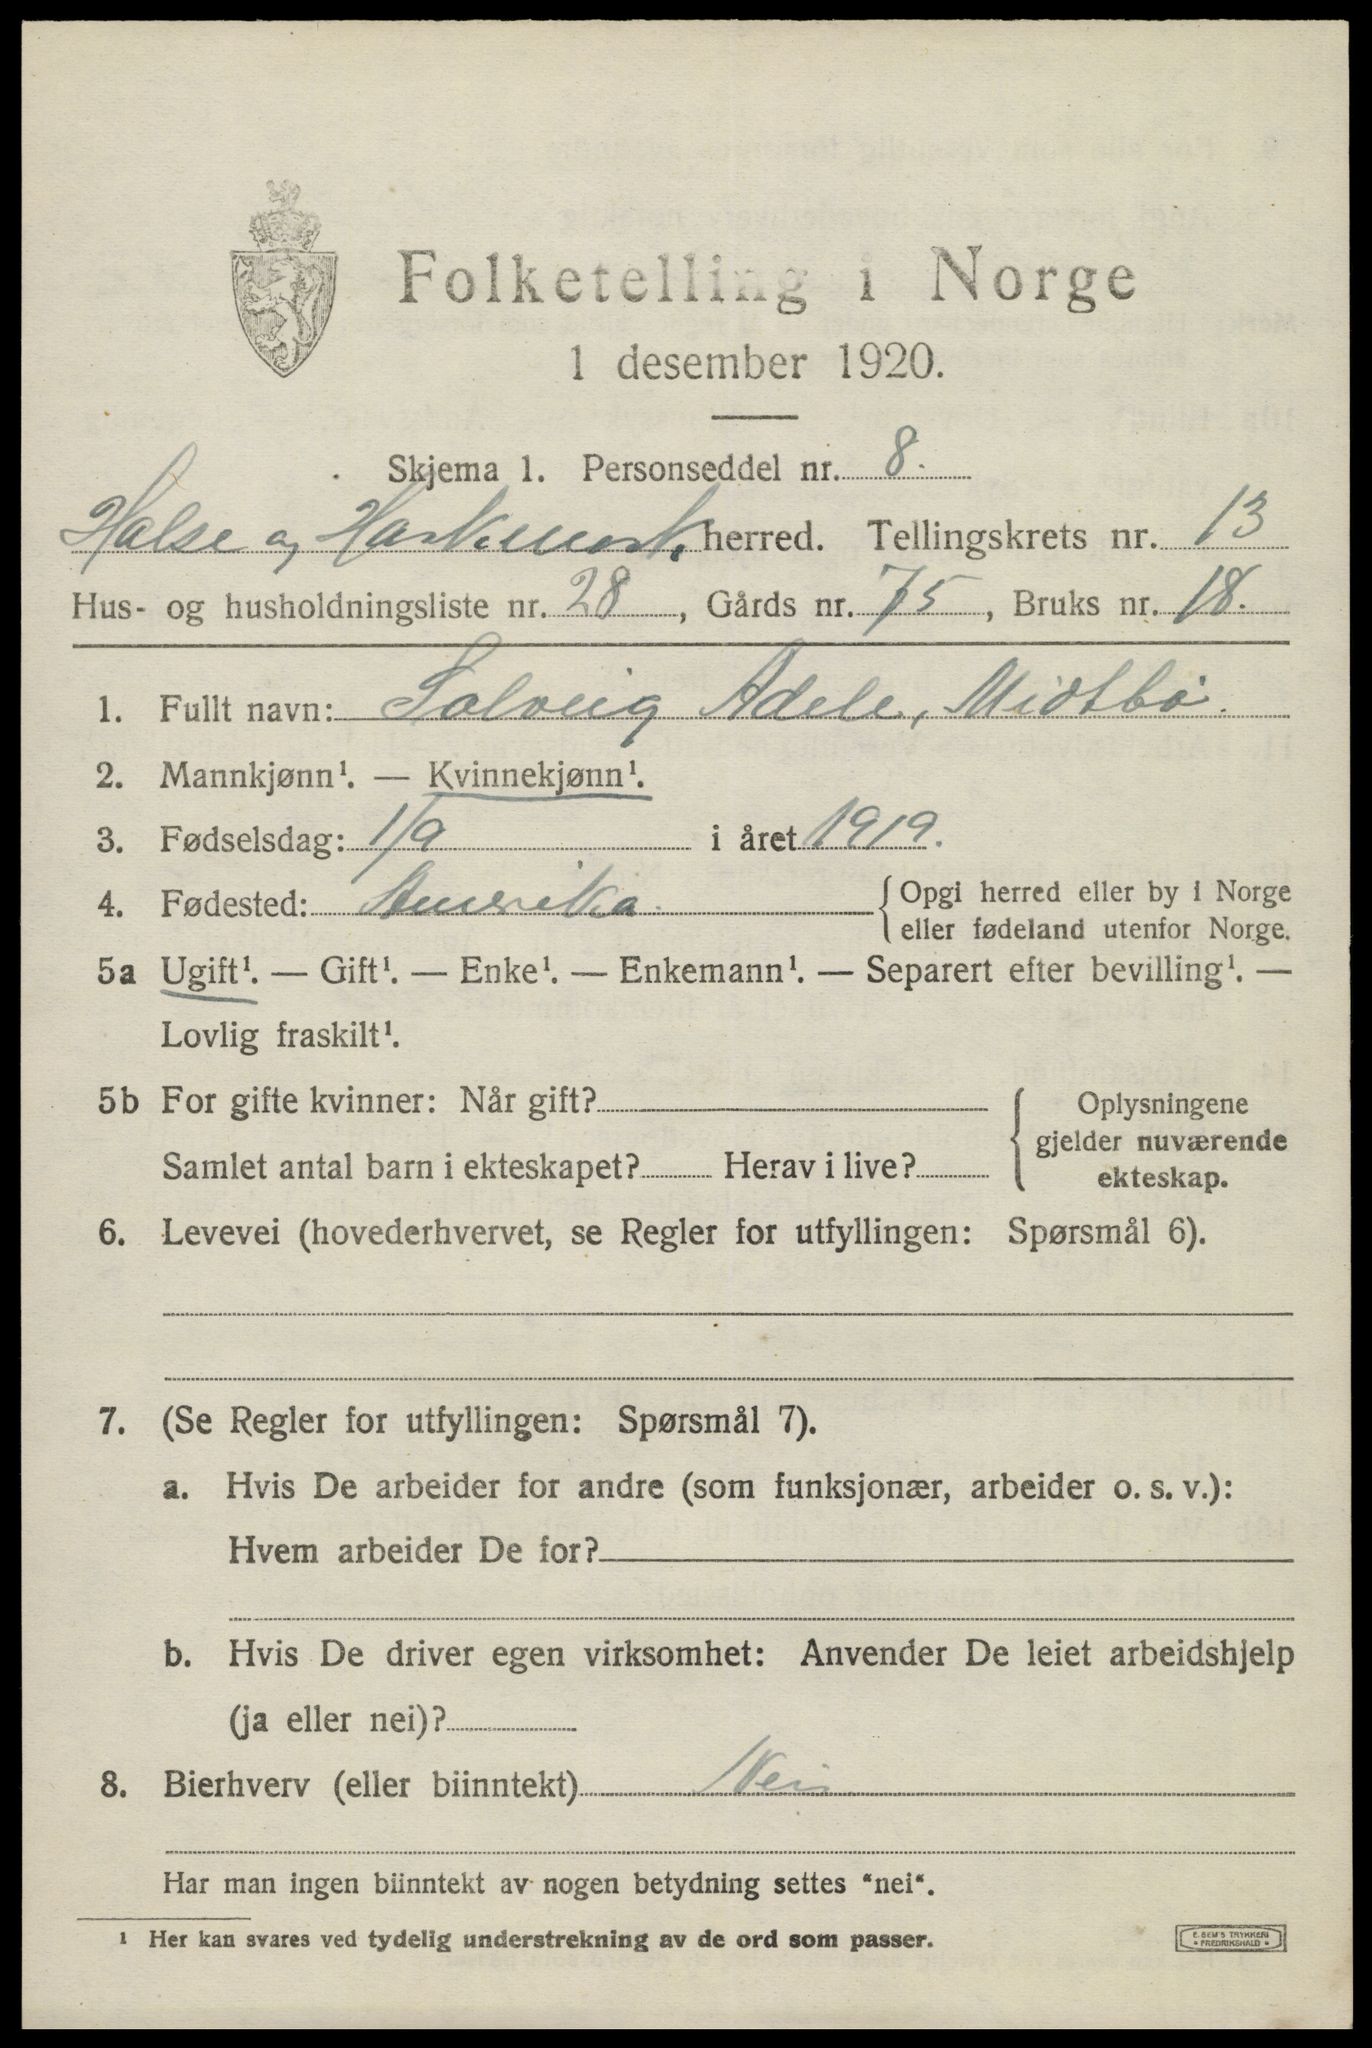 Folketelling i Norge
1 desember 1920.
Skjema 1. Personseddel nr. 8.
Halse og Harkmark herred. Tellingskrets nr. 13
Hus- og husholdningsliste nr. 28, Gårds nr. 75, Bruks nr. 18.
1. Fullt navn: Solveig Adele, Midtbö.
2. Mannkjønn¹. — Kvinnekjønn¹.
3. Fødselsdag: 1/9 i året 1919.
4. Fødested: Amerika. {Opgi herred eller by i Norge
eller fødeland utenfor Norge.
5a Ugift¹. — Gift¹. — Enke¹. — Enkemann¹. — Separert efter bevilling¹. —
Lovlig fraskilt¹.
5b For gifte kvinner: Når gift?
Samlet antal barn i ekteskapet? Herav i live?
{ Oplysningene
gjelder nuværende
ekteskap.
6. Levevei (hovederhvervet, se Regler for utfyllingen: Spørsmål 6).
7. (Se Regler for utfyllingen: Spørsmål 7).
a. Hvis De arbeider for andre (som funksjonær, arbeider o. s. v.):
Hvem arbeider De for?
b. Hvis De driver egen virksomhet: Anvender De leiet arbeidshjelp
(ja eller nei)?
8. Bierhverv (eller biinntekt) Nei
Har man ingen biinntekt av nogen betydning settes "nei".
¹ Her kan svares ved tydelig understrekning av de ord som passer.
E. SEM'S TRYKKERI
• FREDRIKSHALD •